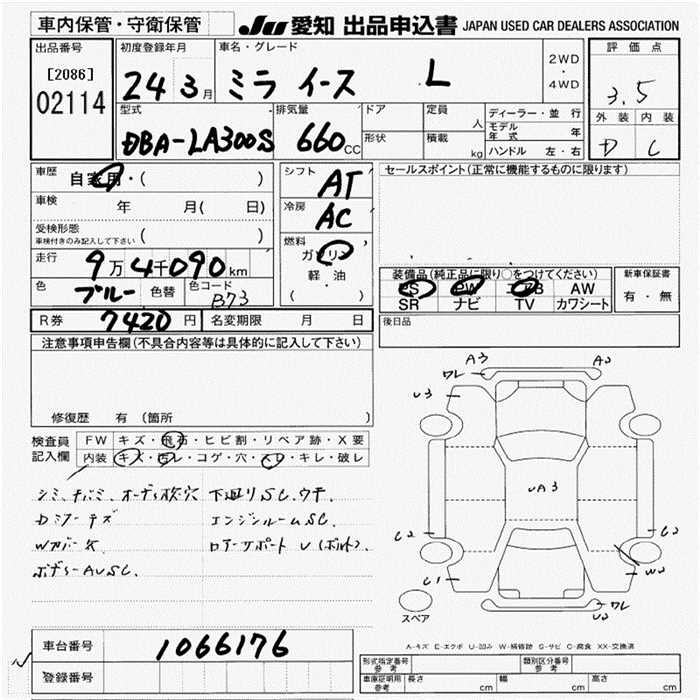 車内保管・守衛保管
JU 愛知 出品申込書 JAPAN USED CAR DEALERS ASSOCIATION
出品番号
[2086]
02114
初度登録年月
24 3月
車名・グレード
ミラ イース L
2WD
・
4WD
評価点
3.5
外装 内装
D C
型式
DBA-LA300S
排気量
660cc
ドア
形状
定員 人
積載 kg
ディーラー・並行
モデル年式 年
ハンドル 左・右
車歴 自家用・( )
車検 年 月( 日)
受検形態
車検付きのみ記入して下さい ( )
走行 9万4千090km
色 ブルー 色替 色コード B73
R券 7420円 名変期限 月 日
シフト AT
冷房 AC
燃料 ガソリン
軽油
( )
セールスポイント(正常に機能するものに限ります)
装備品(純正品に限り○をつけてください)
PS PW エアB AW
SR ナビ TV カワシート
新車保証書
有・無
後日品
注意事項申告欄(不具合内容等は具体的に記入して下さい)
修復歴 有(箇所 )
検査員記入欄
FW キズ・飛石・ヒビ割・リペア跡・X要
内装 キズ・汚レ・コゲ・穴・スレ・キレ・破レ
下廻りSC. ウチ.
エンジンルームSC.
ロアーサポート U(ボルト).
A3
ワレ
U3
UA3
C2
C1
W2
U2
ワレ
スペア
A-キズ E-エクボ U-凹み W-補修跡 S-サビ C-腐食 XX-交換済
車台番号 1066176
登録番号
形式指定番号 参考
類別区分番号 参考
車庫証明用 参考 長さ cm 幅 cm 高さ cm